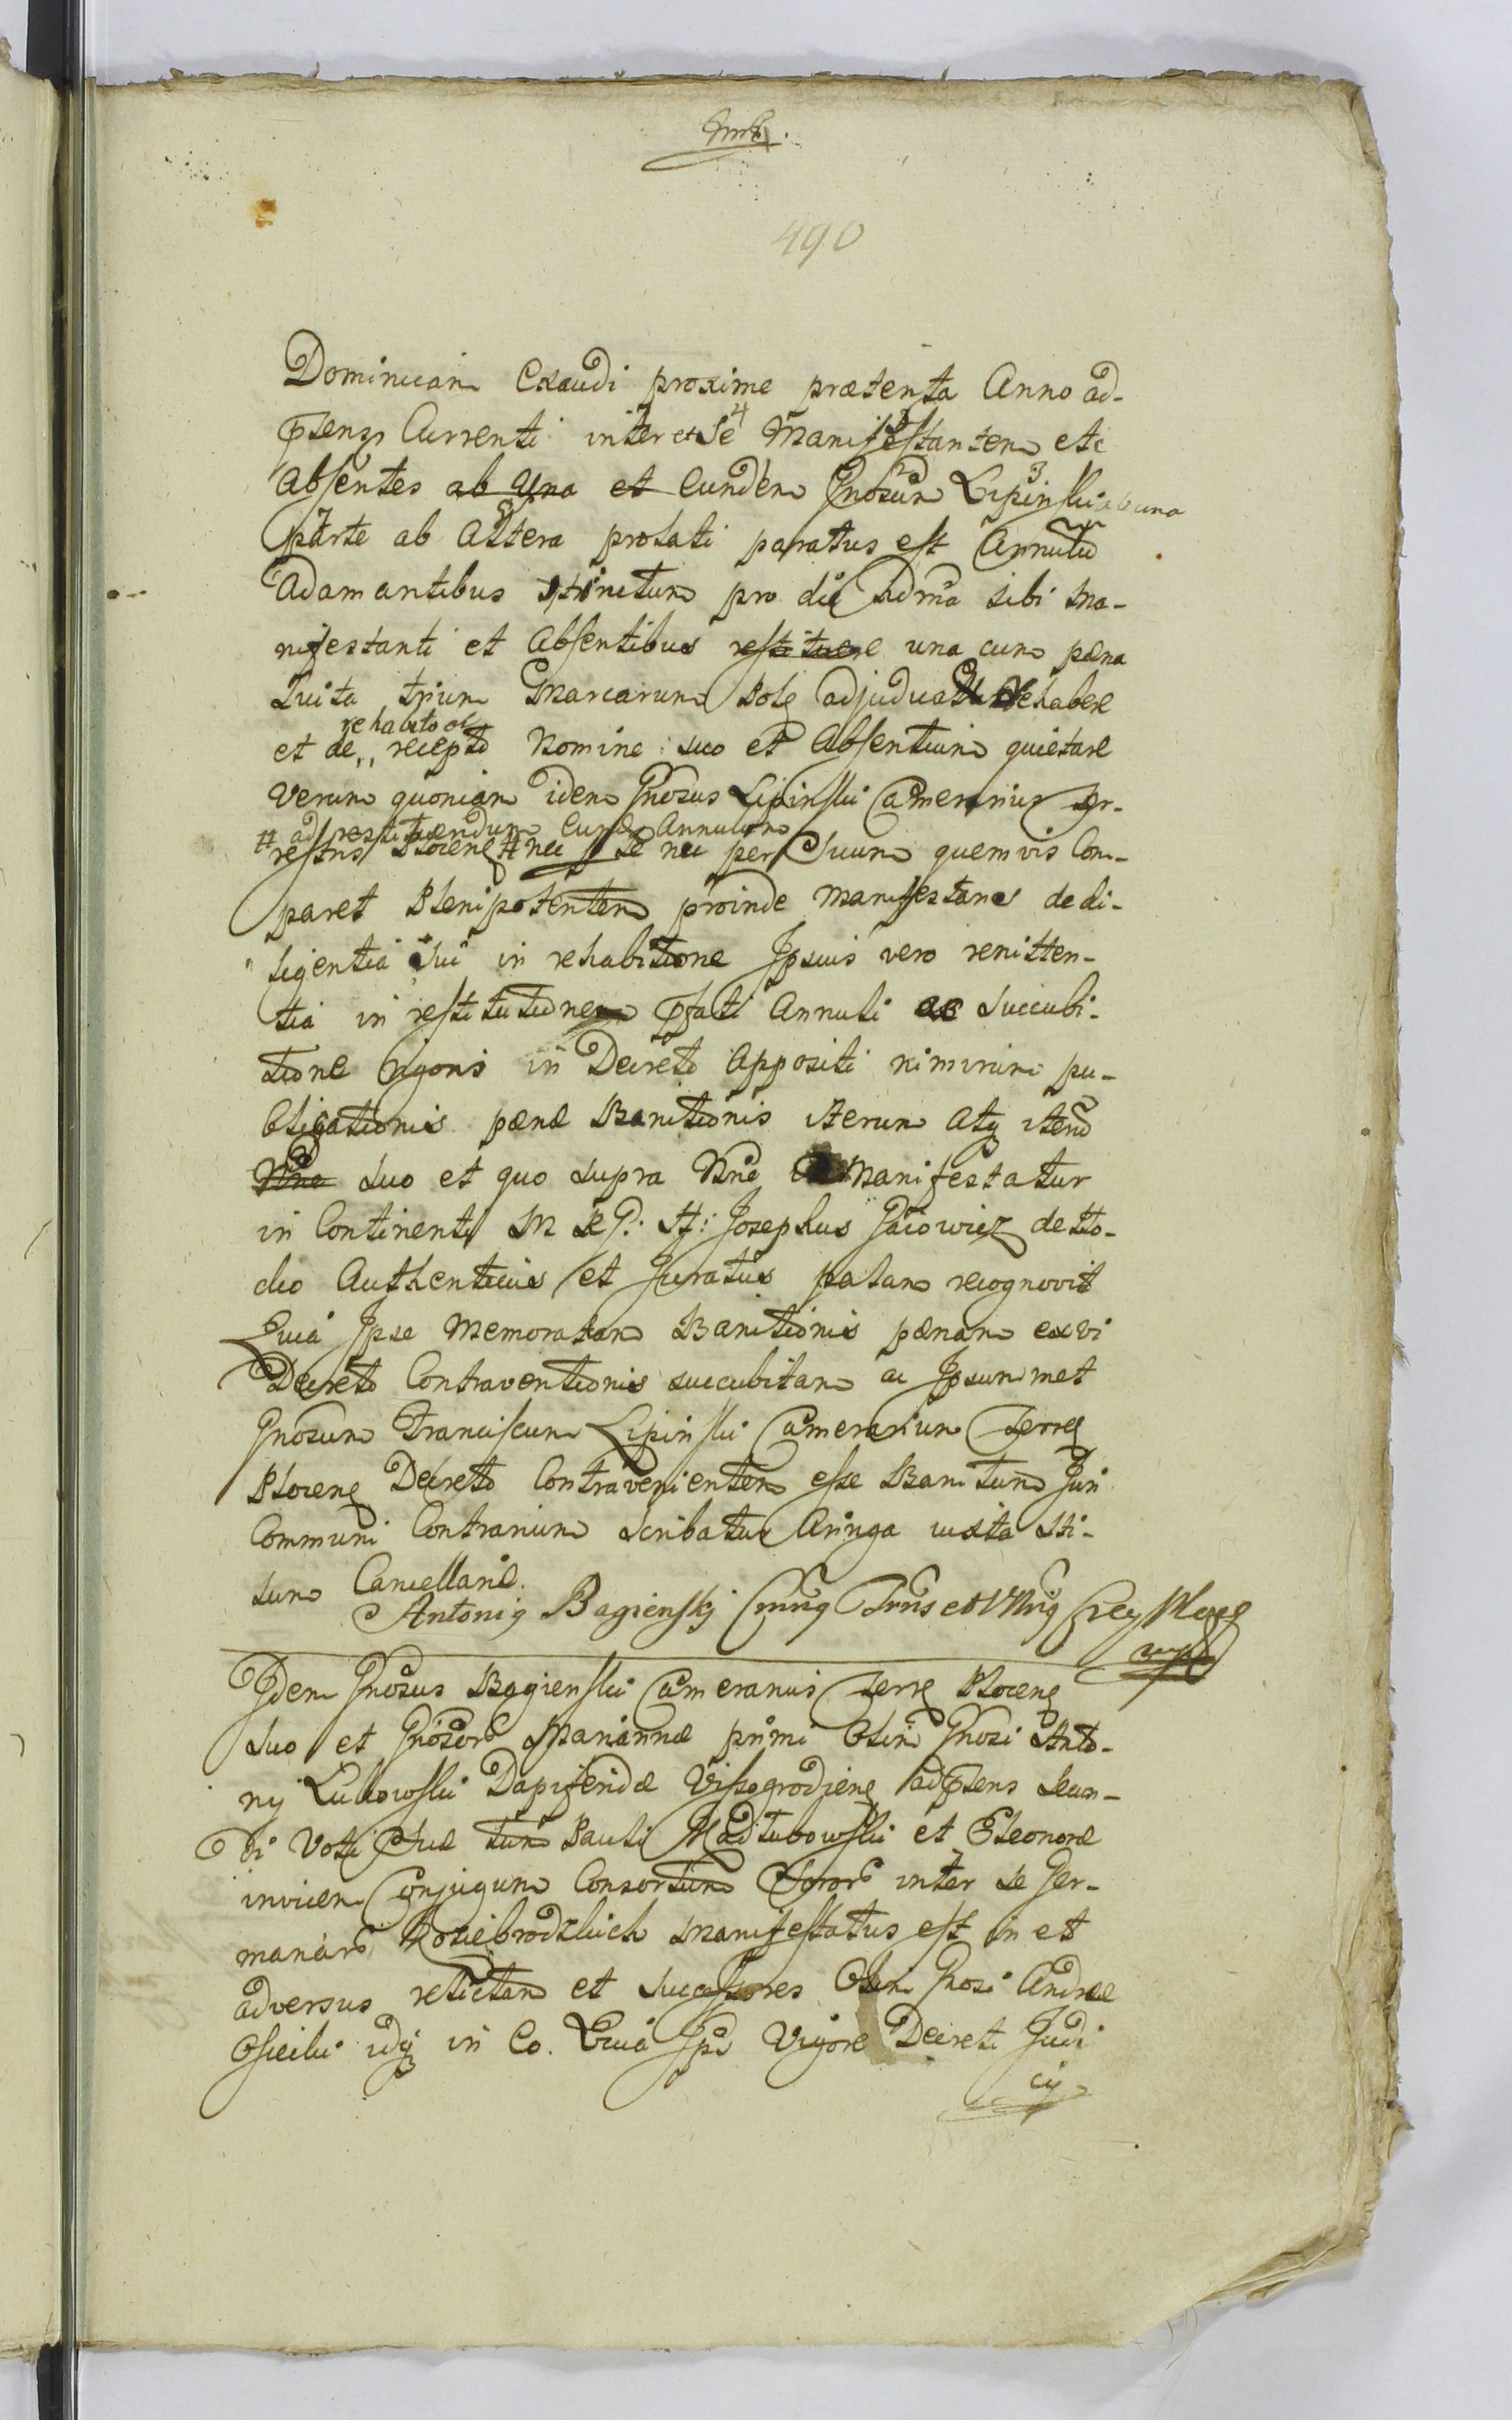 490
Dominicam Exaudi proxime praeterita Anno ad-
pńens Currenti inter et Se 4 Manifestantem etc
Absentes ab Una et Eundem Gnosum 2 Lipinski 3 ab una
parte ab altera prolati paratus est Annulū
Adamantibus pro sibi Ma-
nifestanti et Absentibus restituere una cum paena
Luita trium Marcarum Pole adjudicata rehabere
rehabito et
et de,, recepto Nomine suo et Absentium quietare
Verum quoniam idem Gnosus Lipinski Camerarius Ter-
# ad restituendum Eundem Annulum
restris Plocene # nec p se nec per Suum quemvis Com-
paret Plenipotentem proinde Manifestans de di-
ligentia sui in rehabitione Ipsius vero renitten-
tia in restitutionem pfati Annuli ac succubi-
tione rigoris in Decreto Appositi nimirum pu-
bligationis paenae Banitionis iterum atq iterū
Nne suo et quo supra Nne Manifestatur
in Continenti M R G: St: Josephus Gacowicz de Plo-
cko Authenticus et Juratus palam recognovit
Quia Ipse Memoratam Banitionis paenam ex vi
Decreto Contraventionis succubitam ac Ipsummet
Gnosum Franciscum Lipinski Camerarium Terrę
Plocenę Decreto Contravenientem esse Banitum Juri
Communi Contrarium Scribatur Aringa iuxta Sti-
lum Cancellariae.
Antonig Bagienskj
Idem Gnosus Bagienski Camerarius Terrę Plocenę
suo et Gnosarū Mariannae primi Olim Gnosi Anto-
nij Lukowski Dapiferidae Vissogrodiensę adpńens Secun-
di Voti tum Pauli et Eleonorae
invicem Conjugum Consortum Sororū inter se Ger-
manarū Koziebrodzkich Manifestatus est in et
adversus relictam et Successores Olim Gnosi Andreae
Osiecki idq in Eo. Quia Ipse Vigore Decreti Judi
cij